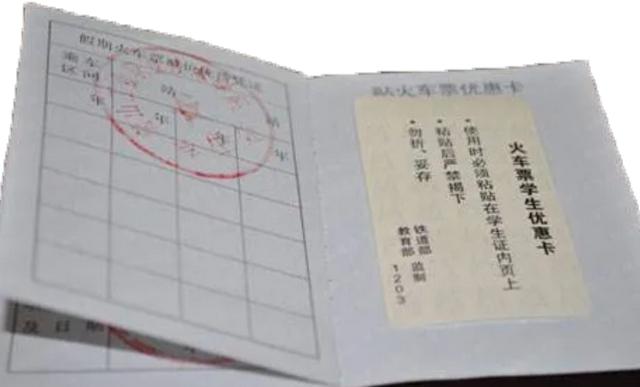 假期火车票
乘车
区间
站—
站
年
年
年
年
及日期
贴火车票优惠卡
火车票学生优惠卡
• 使用时必须粘贴在学生证内页上
• 粘贴后严禁揭下
• 勿折、妥存
铁道部
教育部
监制
1203